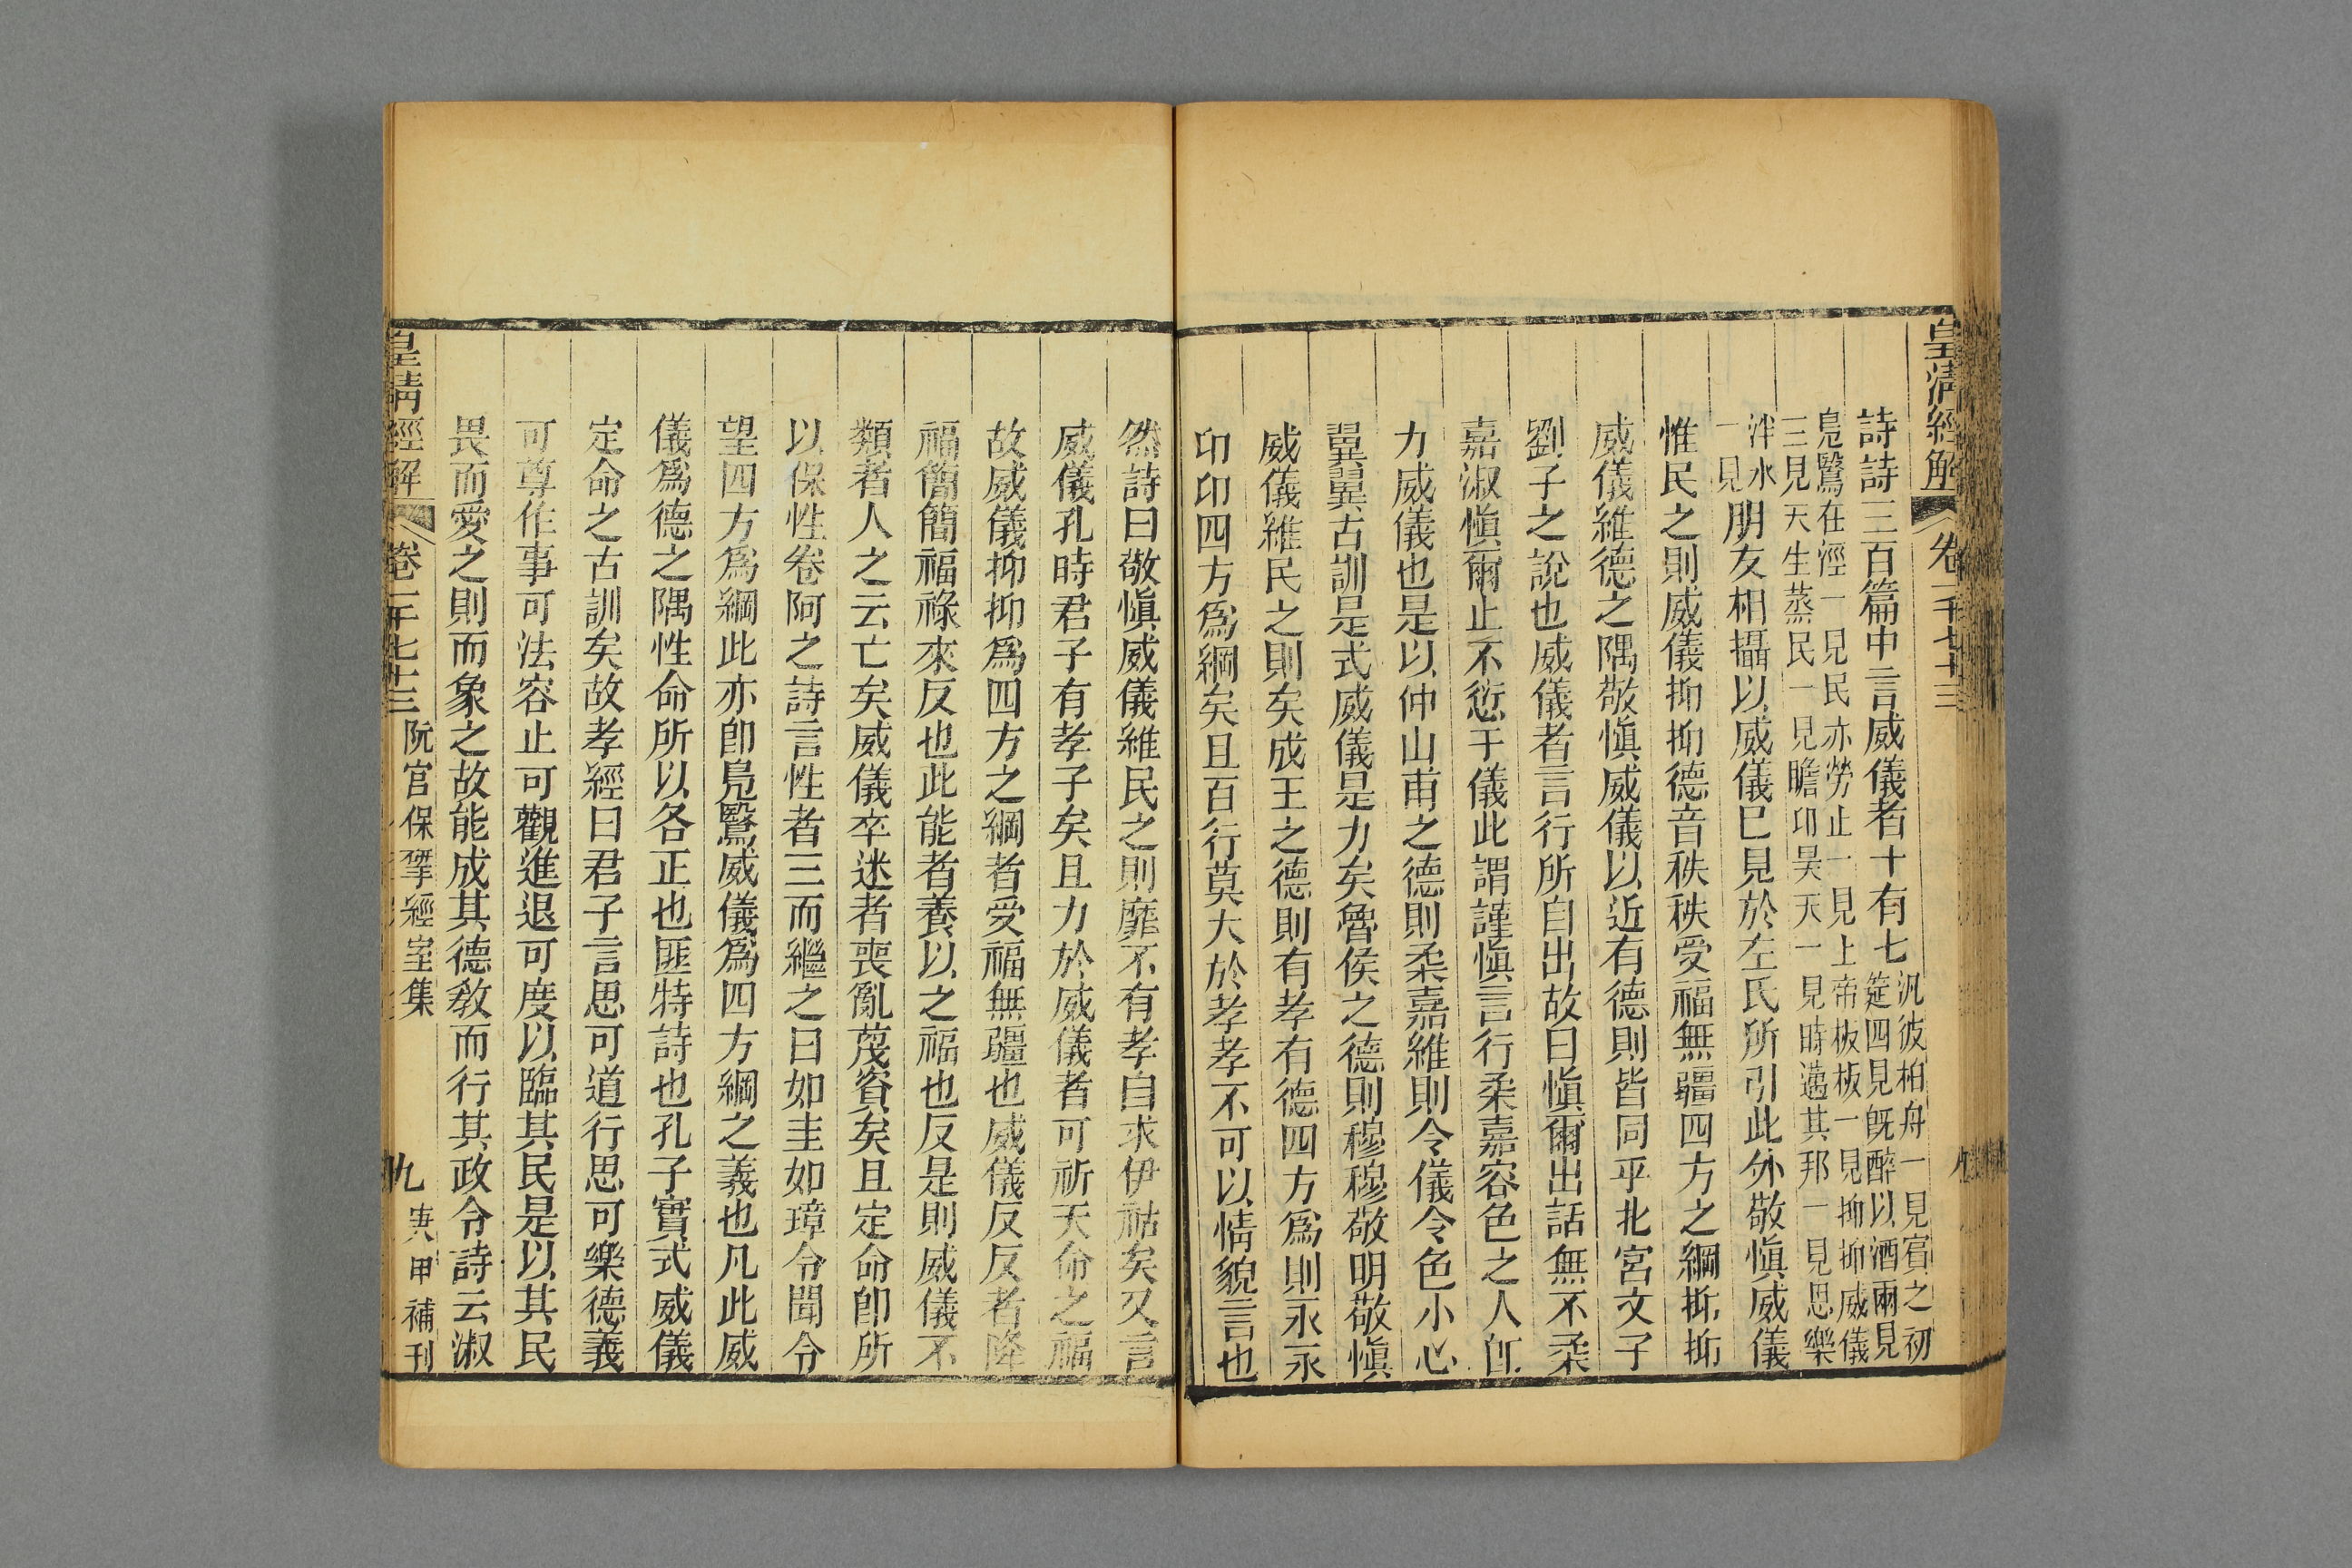 皇淸經解 卷一千七十三
詩詩三百篇中言威儀者十有七汎彼柏舟一見賓之初
筵四見旣醉以酒兩見
鳧鷖在涇一見民亦勞止一見上帝板板一見抑抑威儀
三見天生蒸民一見瞻卬昊天一見時邁其邦一見思樂
泮水
一見朋友相攝以威儀已見於左氏所引此外敬愼威儀
惟民之則威儀抑抑德音秩秩受福無疆四方之綱抑抑
威儀維德之隅敬愼威儀以近有德則皆同乎北宮文子
劉子之說也威儀者言行所自出故曰愼爾出話無不柔
嘉淑愼爾止不愆于儀此謂謹愼言行柔嘉容色之人卽
力威儀也是以仲山甫之德則柔嘉維則令儀令色小心
翼翼古訓是式威儀是力矣魯侯之德則穆穆敬明敬愼
威儀維民之則矣成王之德則有孝有德四方爲則永永
卬卬四方爲綱矣且百行莫大於孝孝不可以情貌言也
然詩曰敬愼威儀維民之則靡不有孝自求伊祜矣又言
威儀孔時君子有孝子矣且力於威儀者可祈天命之福
故威儀抑抑爲四方之綱者受福無疆也威儀反反者降
福簡簡福祿來反也此能者養以之福也反是則威儀不
類者人之云亡矣威儀卒迷者喪亂蔑資矣且定命卽所
以保性卷阿之詩言性者三而繼之曰如圭如璋令聞令
望四方爲綱此亦卽鳧鷖威儀爲四方綱之義也凡此威
儀爲德之隅性命所以各正也匪特詩也孔子實式威儀
定命之古訓矣故孝經曰君子言思可道行思可樂德義
可尊作事可法容止可觀進退可度以臨其民是以其民
畏而愛之則而象之故能成其德敎而行其政令詩云淑
皇淸經解 卷一千七十三 阮宫保揅經室集 九 庚申補刊